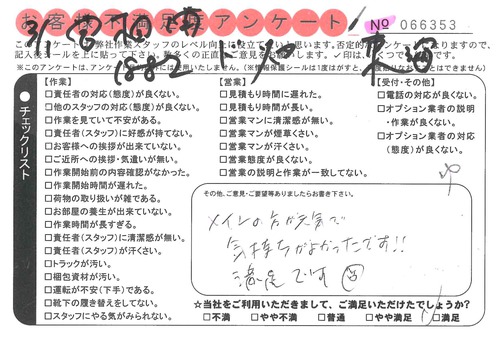 お客様不満足度アンケート
No 066353
このアンケートは弊社作業スタッフのレベル向上に役立てたいと思います。否定的なアンケートでありますので、
記入後シールを上に貼って下さい。数多くの正直なご意見をお寄せ下さい。✓印は、いくつつけても結構です。
※このアンケートは、アンケート以外の目的には使用いたしません。(※情報保護シールは1度はがすと、はることはできません)
チェックリスト
【作業】
□責任者の対応(態度)が良くない。
□他のスタッフの対応(態度)が良くない。
□作業を見ていて不安がある。
□責任者(スタッフ)に好感が持てない。
□お客様への挨拶が出来ていない。
□ご近所への挨拶・気遣いが無い。
□作業開始前の内容確認がなかった。
□作業開始時間が遅れた。
□荷物の取り扱いが雑である。
□お部屋の養生が出来ていない。
□作業時間が長すぎる。
□責任者(スタッフ)に清潔感が無い。
□責任者(スタッフ)が汗くさい。
□トラックが汚い。
□梱包資材が汚い。
□運転が不安(下手)である。
□靴下の履き替えをしてない。
□スタッフにやる気がみられない。
【営業】
□見積もり時間に遅れた。
□見積もり時間が長い。
□営業マンに清潔感が無い。
□営業マンが煙草くさい。
□営業マンが汗くさい。
□営業態度が良くない。
□営業の説明と作業が一致してない。
【受付・その他】
□電話の対応が良くない。
□オプション業者の説明
・作業が良くない。
□オプション業者の対応
(態度)が良くない。
その他、ご意見・ご要望等ありましたらお書き下さい。
メインの方が元気で
気持ちがよかったです!!
満足です
☆当社をご利用いただきまして、ご満足いただけたでしょうか?
□不満 □やや不満 □普通 □やや満足 □満足